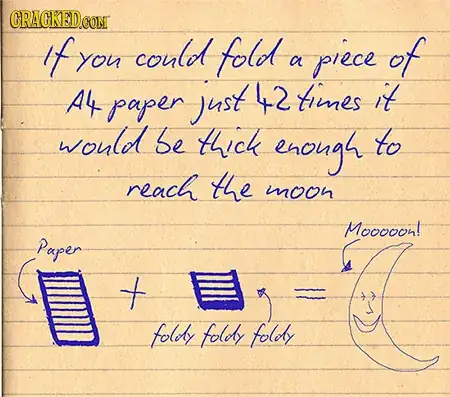 CRACKED.COM
If you could fold a piece of
A4 paper just 42 times it
would be thick enough to
reach the moon
Mooooon!
Paper
+ =
foldy foldy foldy